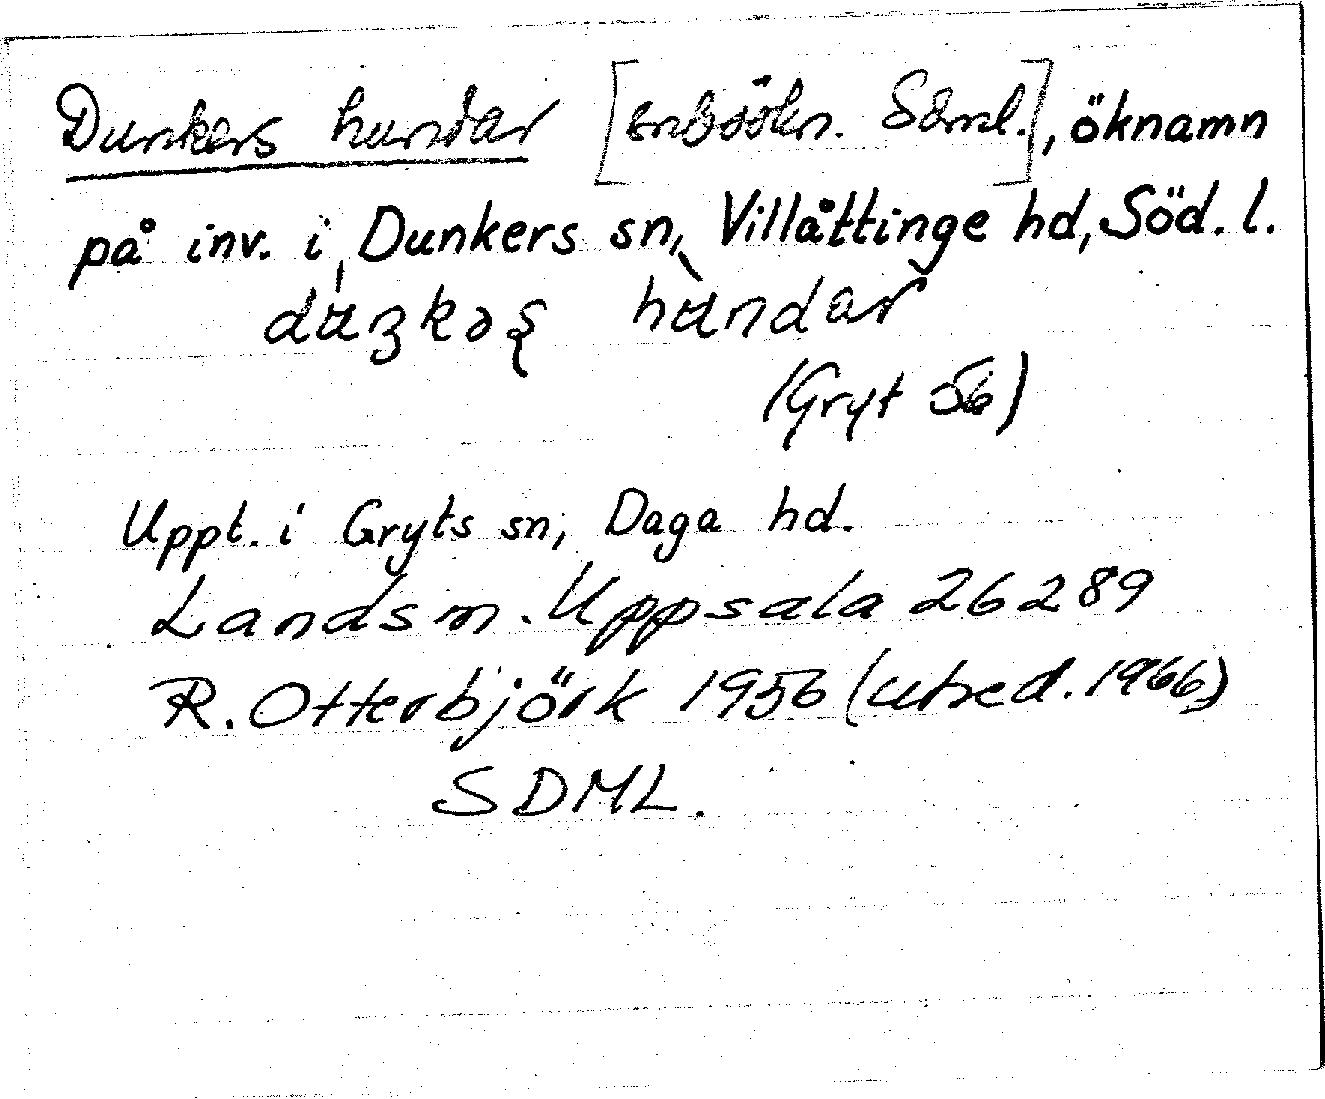 Dunkers hundar [snbsökn. Säml.], öknamn
på inv. i Dunkers sn, Villåttinge hd, Söd. l.
hùndar
(Gryt 56)
Uppt. i Gryts sn, Daga hd.
Landsm. Uppsala 26289
R. Otterbjörk 1956 (utred. 1966)
SDML.